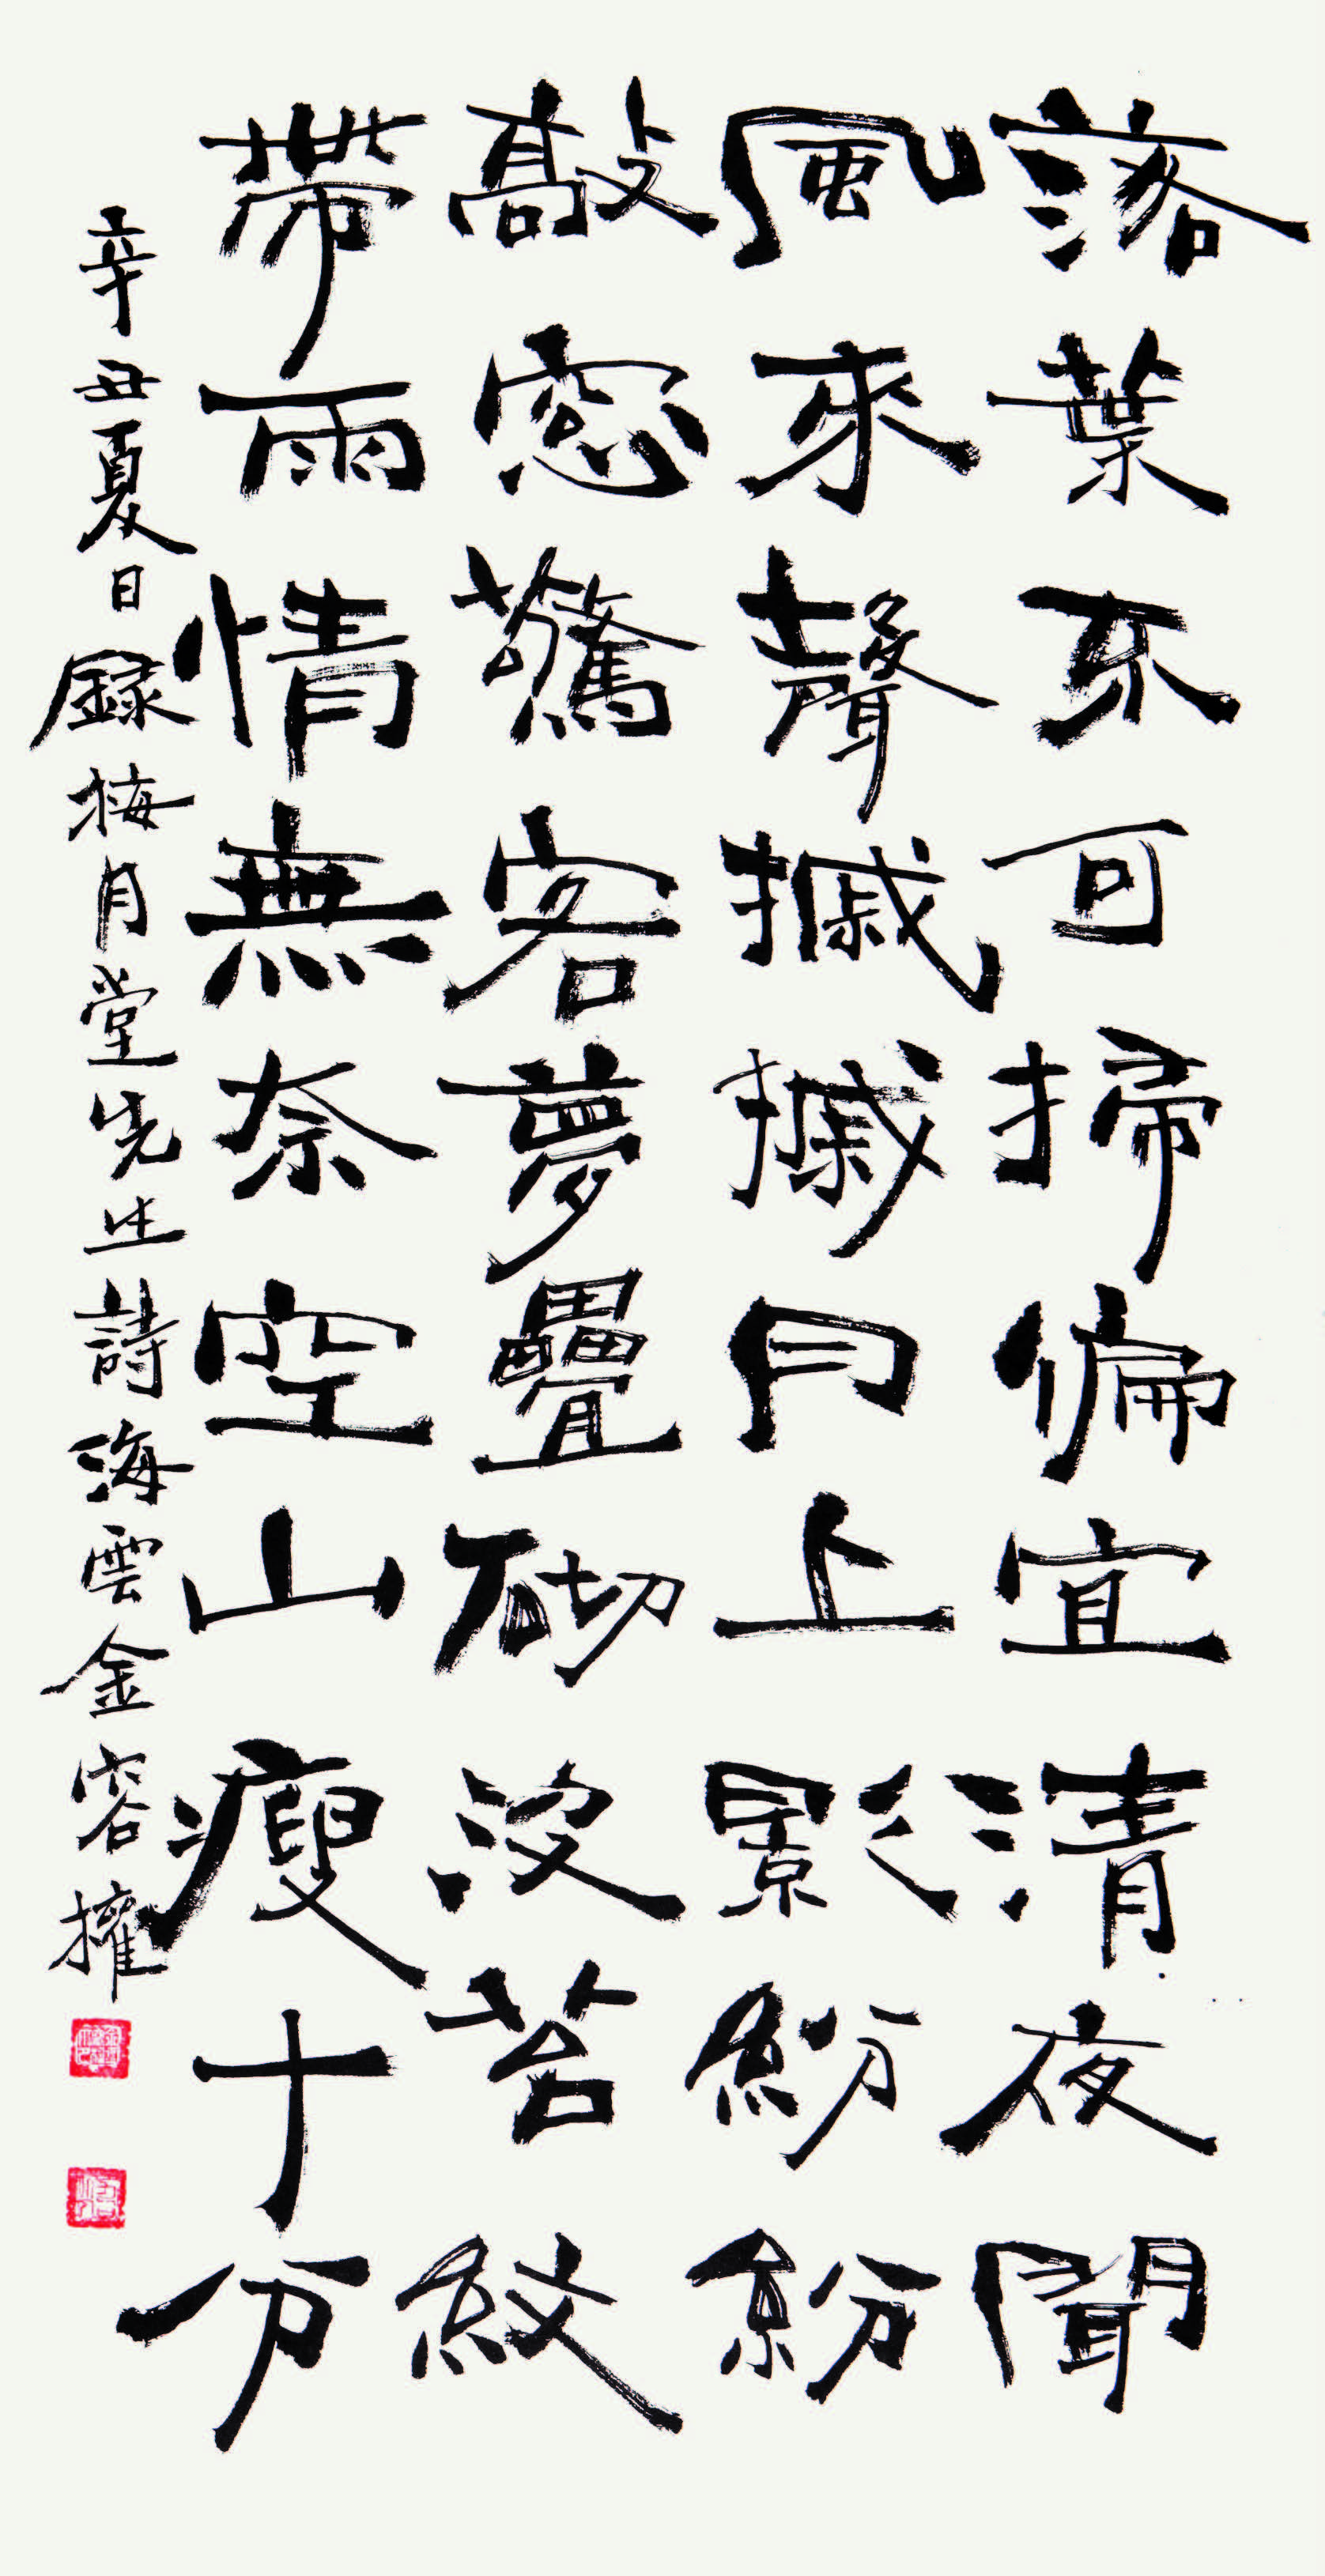 落葉不可掃偏宜清夜聞
風來聲摵摵月上影紛紛
敲窓驚客夢疊砌沒苔紋
帶雨情無奈空山瘦十分
辛丑夏日錄梅月堂先生詩海雲金容權